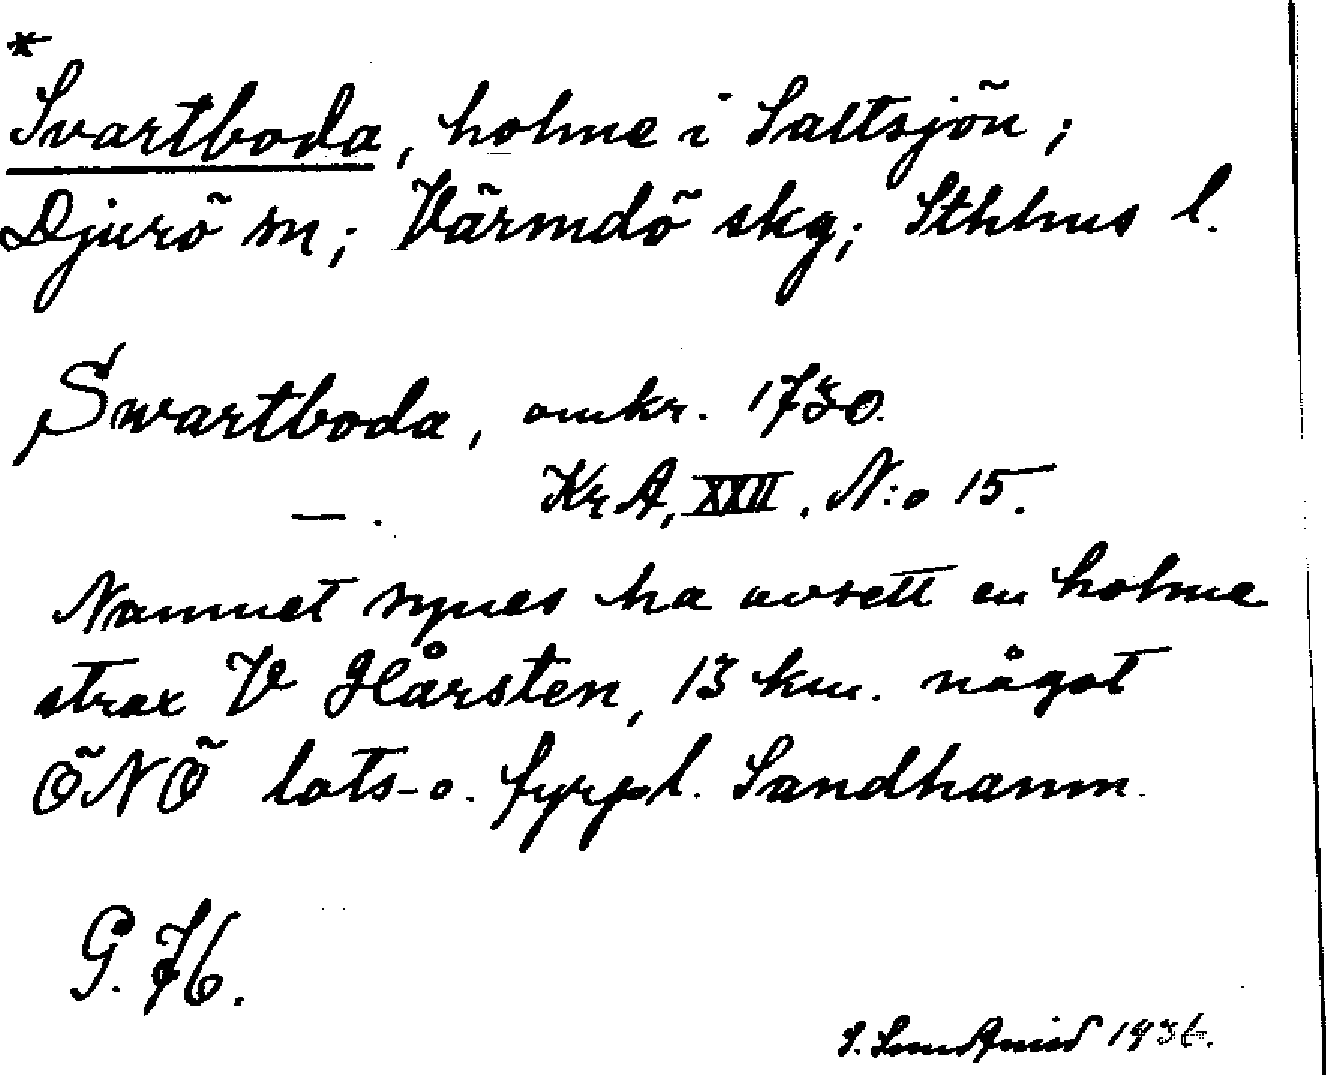 *
Svartboda, holme i Saltsjön;
Djurö sn; Värmdö skg; Sthlms l.
Swartboda, omkr. 1730.
—. KrA, XXII. N:o 15.
Namnet synes ha avsett en holme
strax V Hårsten, 13 km. något
ÖNÖ lots- o. fyrpl. Sandhamn.
G. H.
1936.